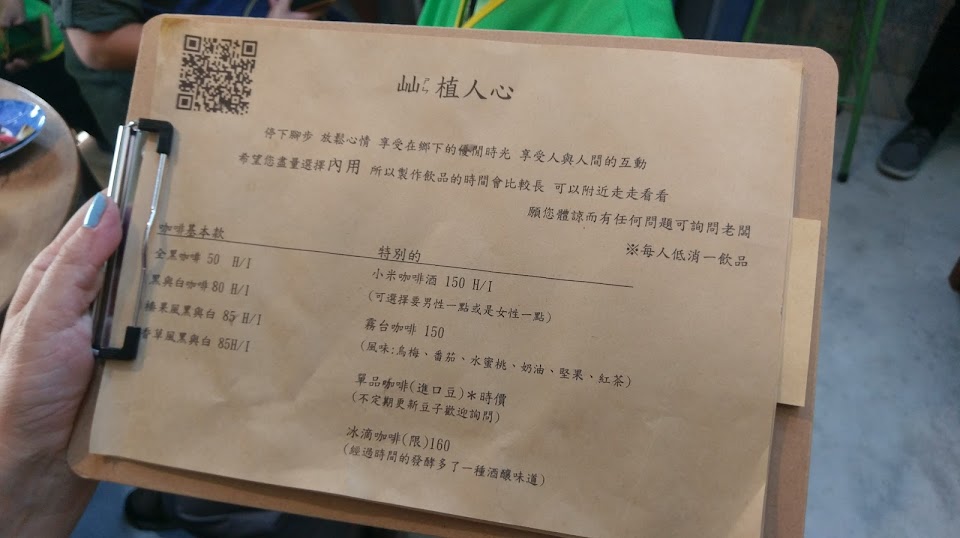 屾ㄕㄣ植人心
停下腳步 放鬆心情 享受在鄉下的優閒時光 享受人與人間的互動
希望您盡量選擇內用 所以製作飲品的時間會比較長 可以附近走走看看
願您體諒而有任何問題可詢問老闆
※每人低消一飲品
咖啡基本款
全黑咖啡 50 H/I
黑與白咖啡 80 H/I
榛果風黑與白 85 H/I
香草風黑與白 85H/I
特別的
小米咖啡酒 150 H/I
(可選擇要男性一點或是女性一點)
霧台咖啡 150
(風味:烏梅、番茄、水蜜桃、奶油、堅果、紅茶)
單品咖啡(進口豆)*時價
(不定期更新豆子歡迎詢問)
冰滴咖啡(限)160
(經過時間的發酵多了一種酒釀味道)